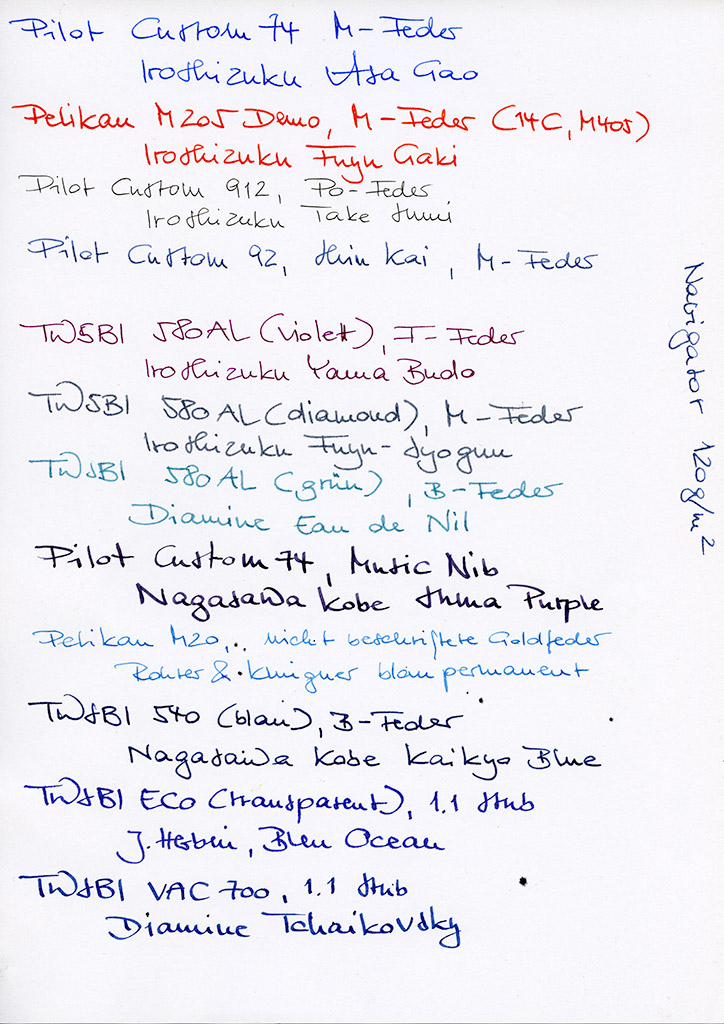 Pilot Custom 74 M-Feder
Iroshizuku Asa Gao
Pelikan M205 Demo, M-Feder (14C, M405)
Iroshizuku Fuyu Gaki
Pilot Custom 912, Po-Feder
Iroshizuku Take Sumi
Pilot Custom 92, Shin Kai, M-Feder
TWSBI 580AL (violett), F-Feder
Iroshizuku Yama Budo
TWSBI 580 AL (diamond), M-Feder
Iroshizuku Fuyu-Syogun
TWSBI 580 AL (grün), B-Feder
Diamine Eau de Nil
Pilot Custom 74, Music Nib
Nagasawa Kobe Suma Purple
Pelikan M20, nicht beschriftete Goldfeder
Rohrer & Klingner blau permanent
TWSBI 540 (blau), B-Feder
Nagasawa Kobe Kaikyo Blue
TWSBI ECO (transparent), 1.1 Stub
J. Herbin, Bleu Ocean
TWSBI VAC 700, 1.1 Stub
Diamine Tchaikovsky
Navigator 120g/m2